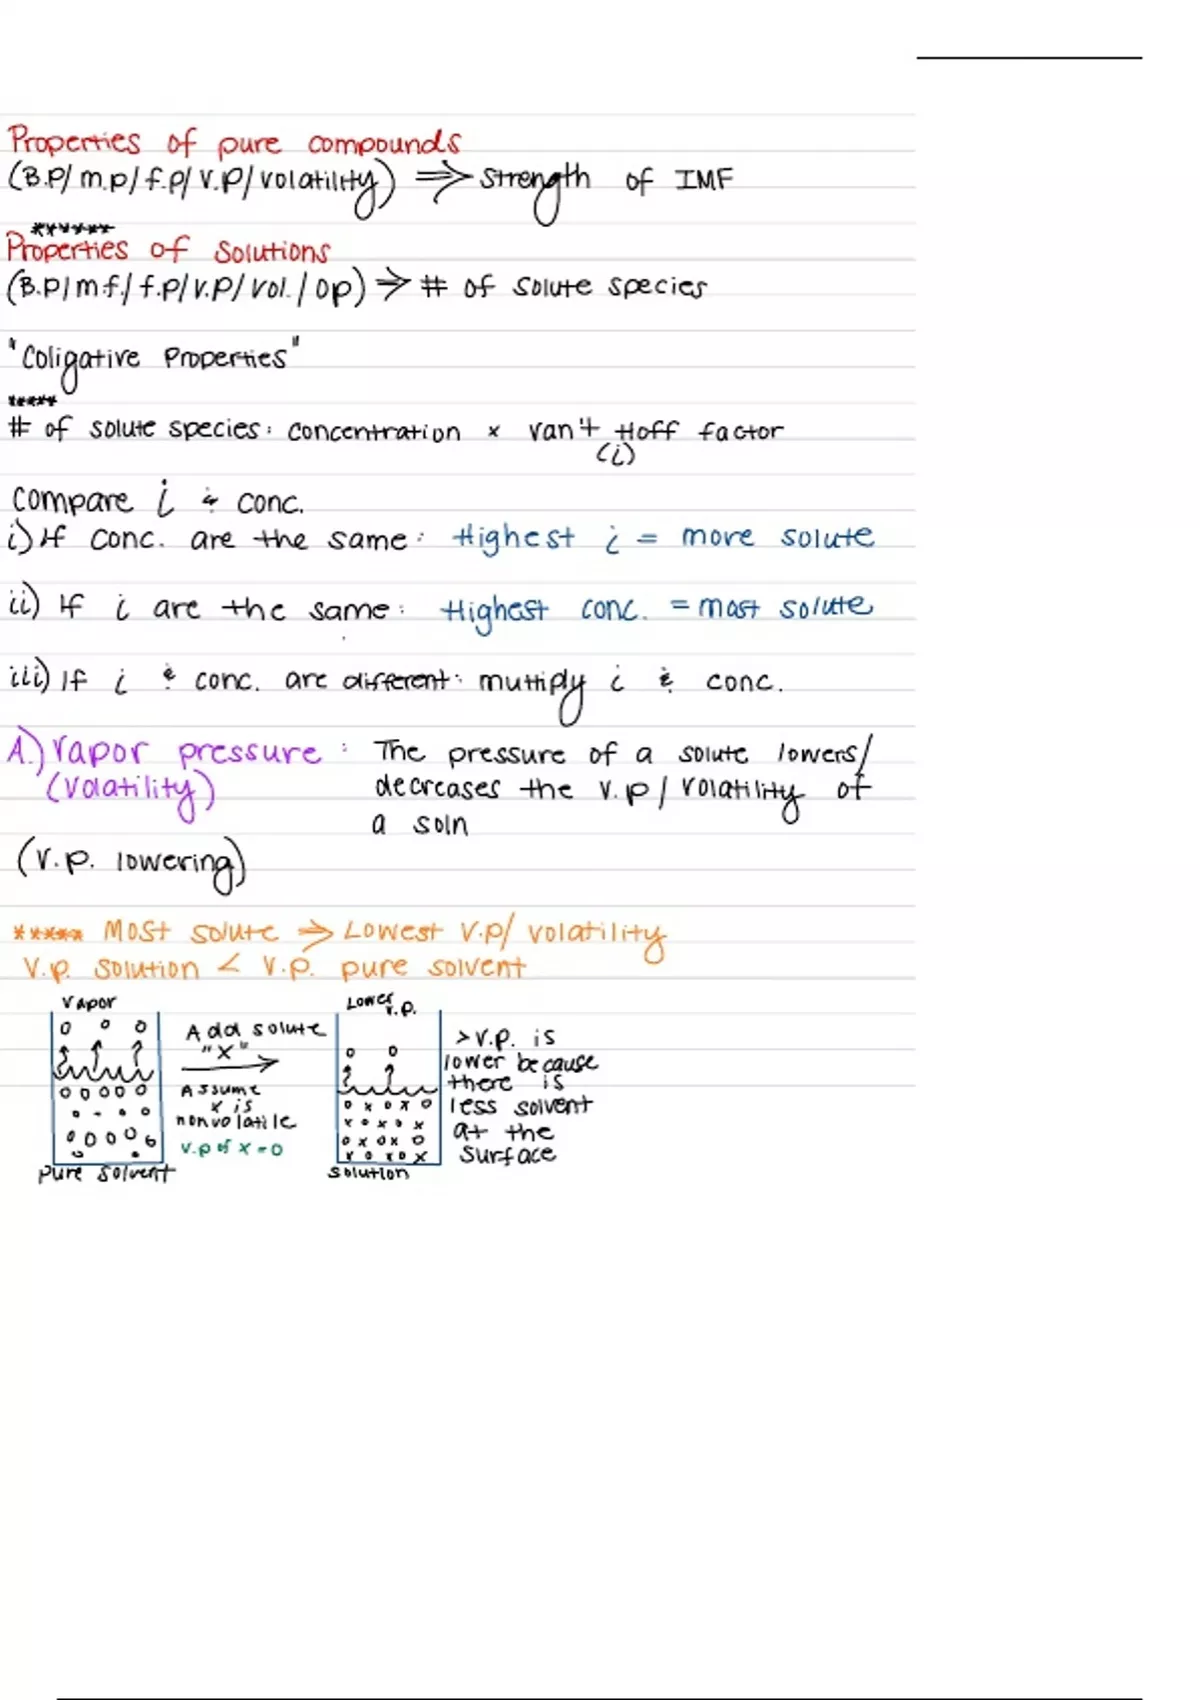 Properties of pure compounds
(B.P/ m.p/ f.p/ V.P/ volatility) ⇒ Strength of IMF
******
Properties of Solutions
(B.p/ m.f./ f.p/ V.P/ Vol. / Op) ⇒ # of solute species
"Coligative Properties"
*****
# of solute species: concentration × van't Hoff factor
(i)
compare i & conc.
i) If conc. are the same: Highest i = more solute
ii) If i are the same: Highest conc. = most solute
iii) If i & conc. are different: multiply i & conc.
A.) Vapor pressure : The pressure of a solute lowers/
(Volatility) decreases the V.p/ volatility of
a soln
(V.p. lowering)
***** Most solute ⇒ Lowest V.p/ volatility
V.p. solution < V.p. pure solvent
Vapor
Lower V.p.
Add solute
"X"
Assume
x is
nonvolatile
V.p of x = 0
> V.p. is
lower because
there is
less solvent
at the
surface
pure solvent
solution